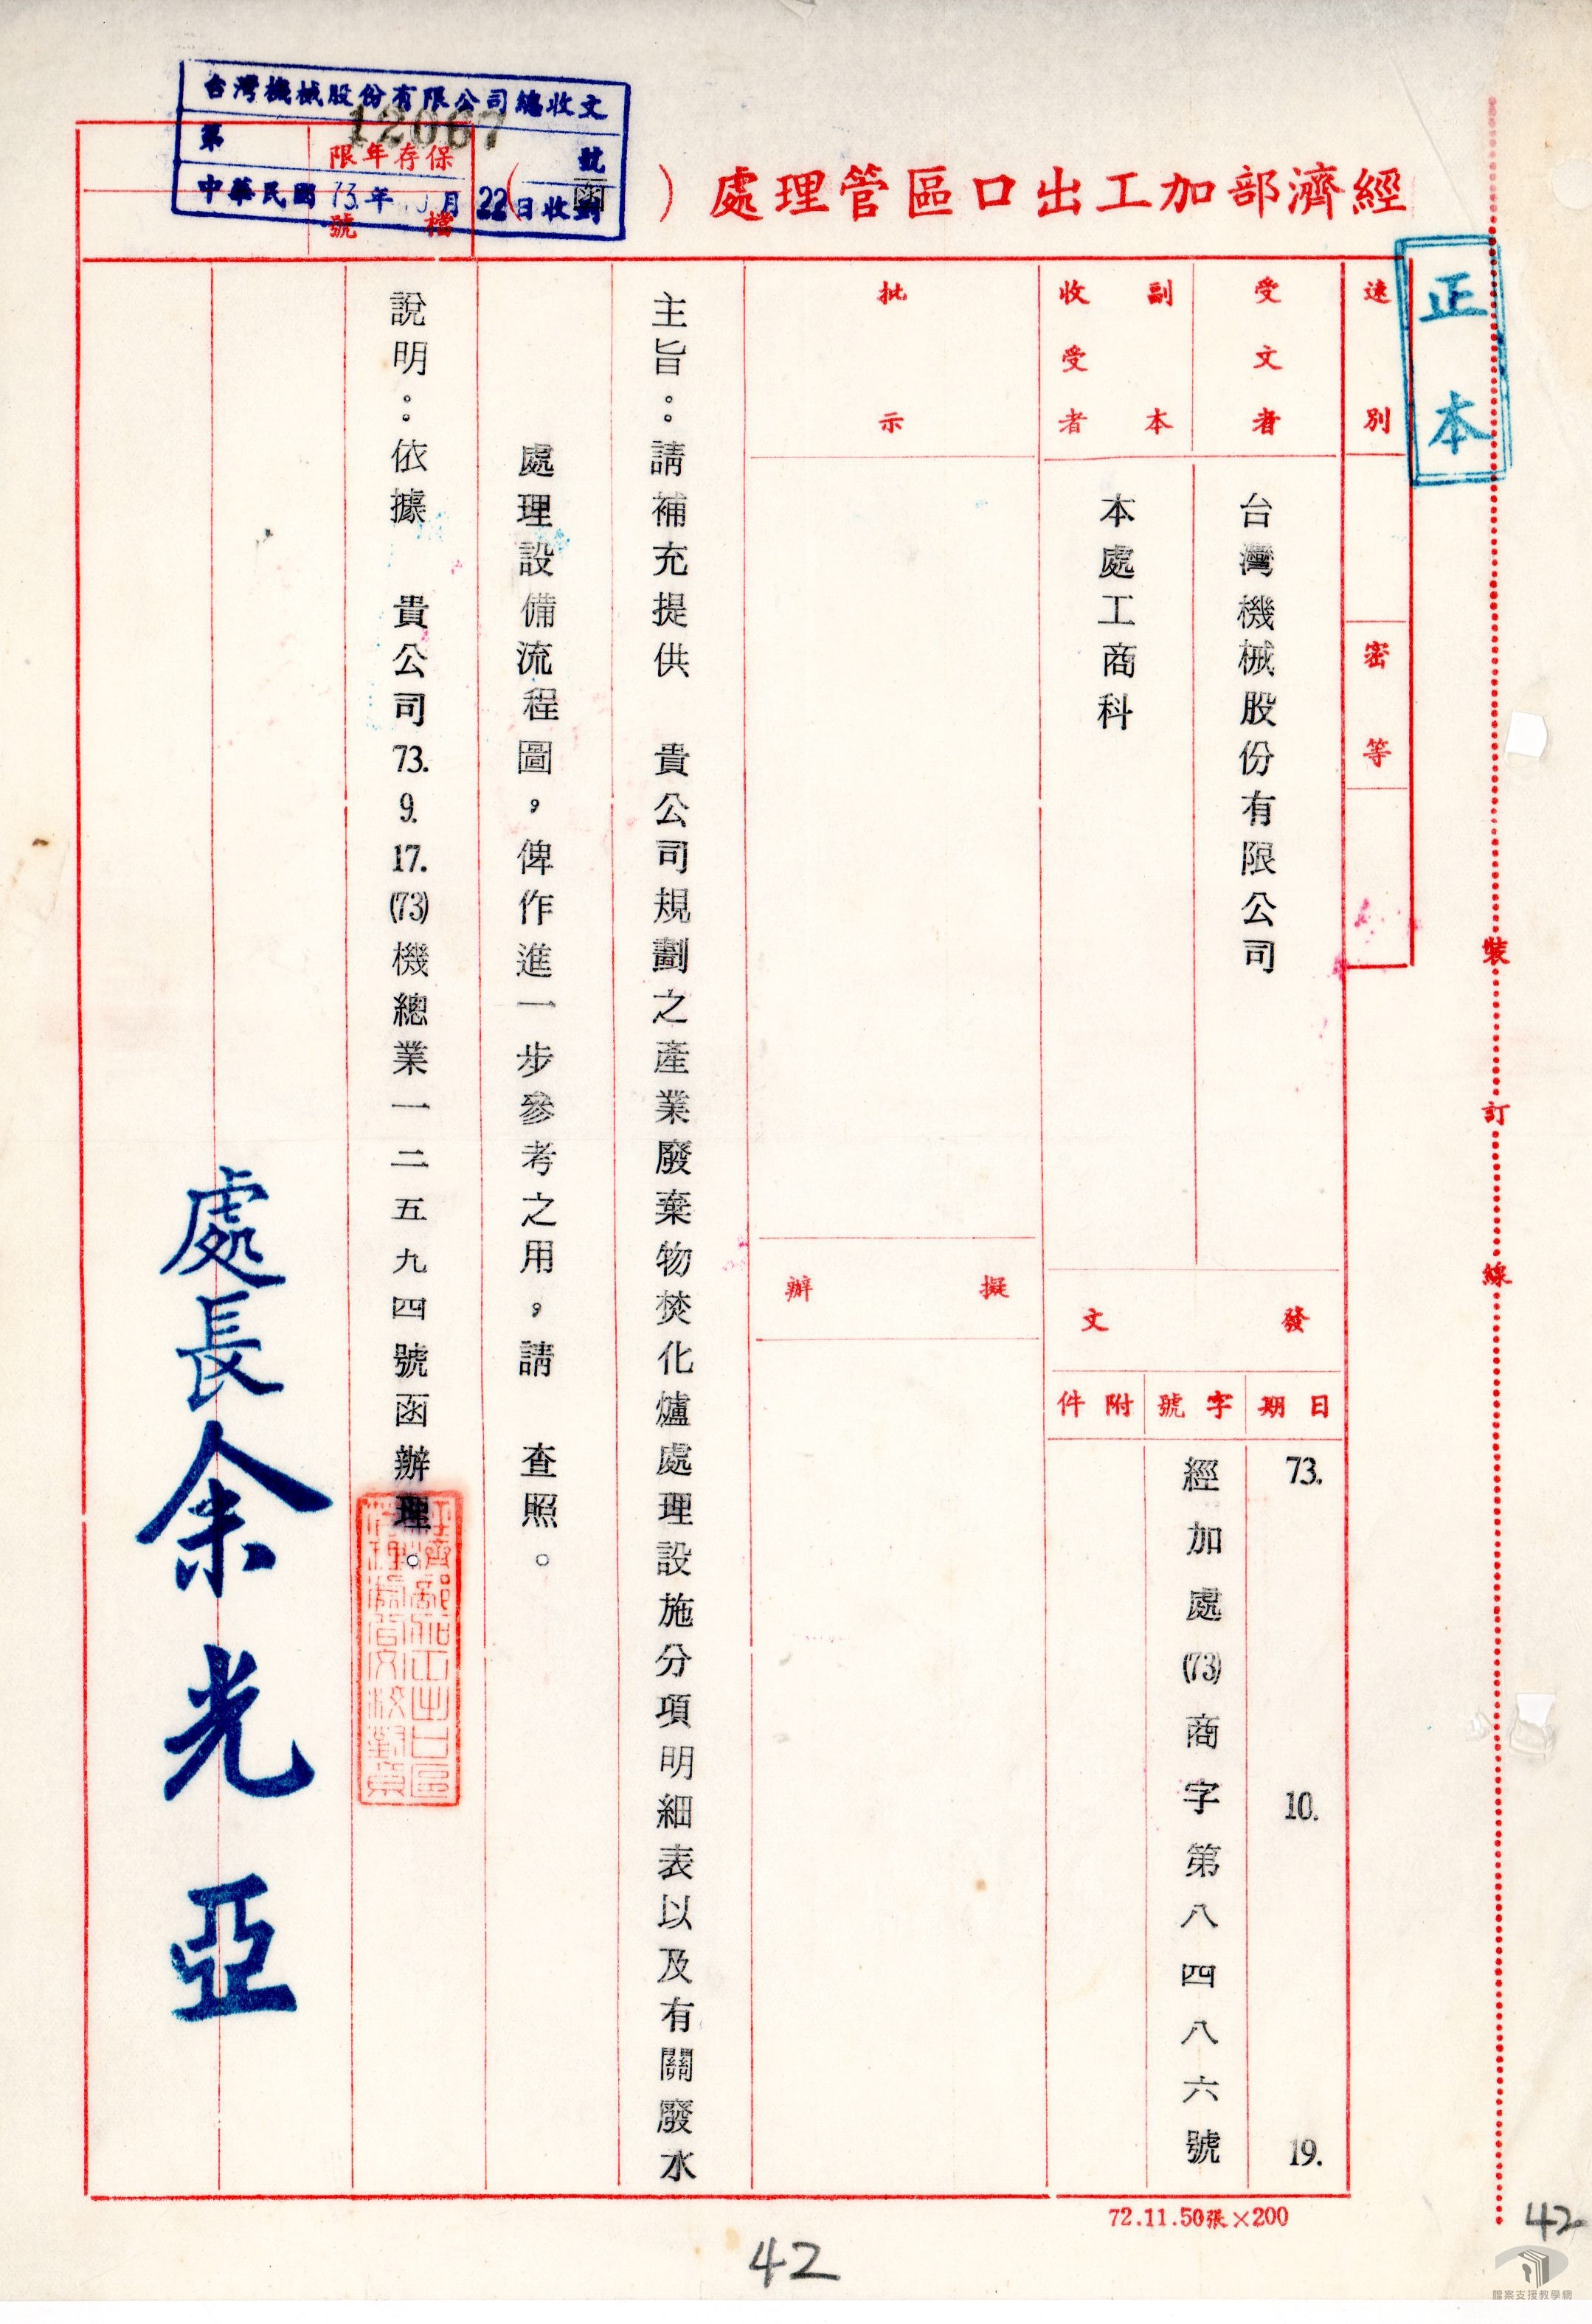 經濟部加工出口區管理處（函）
正本
台灣機械股份有限公司總收文
第 12067 號
中華民國 73.年 月 22日收到
保存年限
檔號
速別
密等
受文者
台灣機械股份有限公司
副本收受者
本處工商科
發文
日期
73. 10. 19.
字號
經加處(73)商字第八四八六號
附件
批示
擬辦
主旨：請補充提供　貴公司規劃之產業廢棄物焚化爐處理設施分項明細表以及有關廢水
處理設備流程圖，俾作進一步參考之用，請　查照。
說明：依據　貴公司73.9.17.(73)機總業一二五九四號函辦理。
處長余光亞
裝訂線
72.11.50張×200
42
42
檔案支援教學網